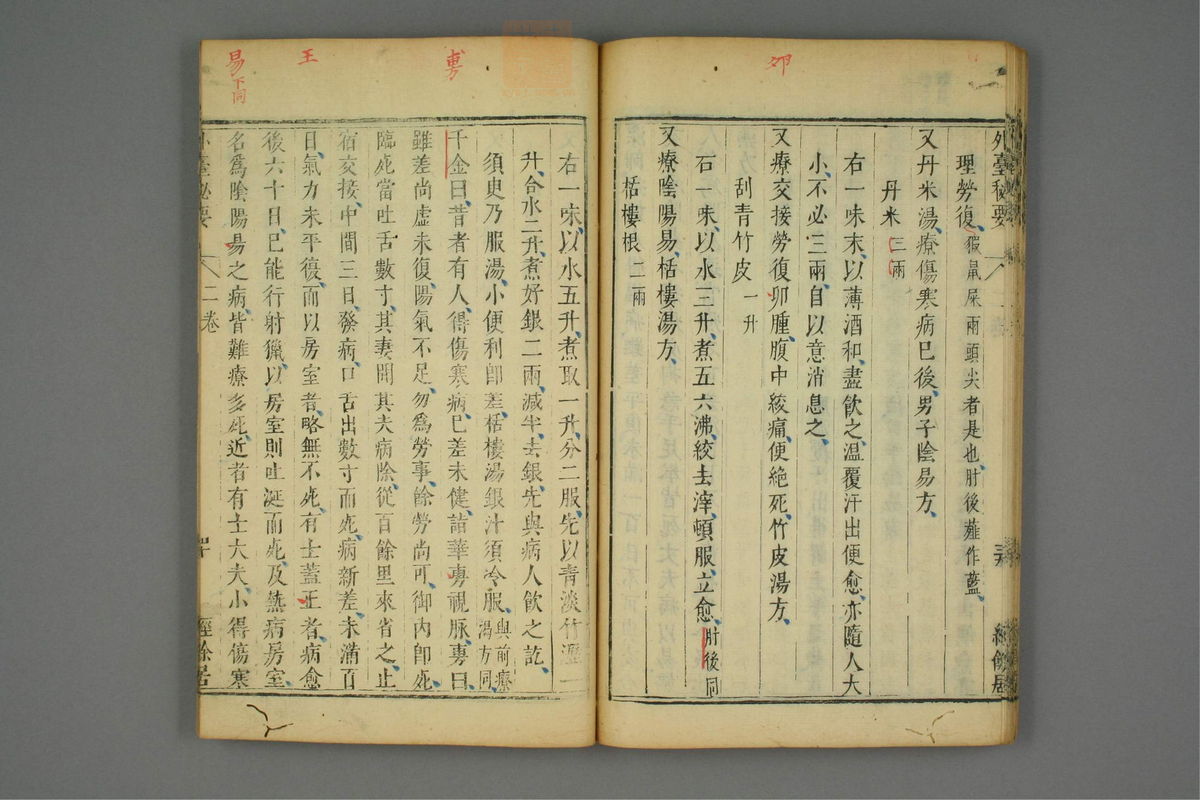 卯
外臺秘要
理勞復、猳鼠屎兩頭尖者是也、肘後薤作藍、
又丹米湯、療傷寒病已後、男子陰易方、
丹米三兩
右一味末、以薄酒和、盡飲之、温覆汗出便愈、亦隨人大
小、不必三兩、自以意消息之、
又療交接勞復、卯腫、腹中絞痛便絕死、竹皮湯方、
刮青竹皮一升
右一味、以水三升、煮五六沸、絞去滓、頓服、立愈、肘後同
又療陰陽易、栝樓湯方、
栝樓根二兩
旉
王
易下同
右一味、以水五升、煮取一升、分二服、先以青淡竹瀝一
升、合水二升、煮好銀二兩、減半、去銀、先與病人飲之訖、
須臾乃服湯、小便利卽差、栝樓湯銀汁須冷服、與前療渴方同
千金曰、昔者有人、得傷寒病、已差未健、詣華旉視脉、旉曰、
雖差尚虛未復、陽氣不足、勿爲勞事、餘勞尚可、御內卽死、
臨死當吐舌數寸、其妻聞其夫病除、從百餘里來省之、止
宿交接、中間三日、發病、口舌出數寸而死、病新差、未滿百
日、氣力未平復、而以房室者、略無不死、有士蓋正者、病愈
後六十日、已能行射獵、以房室則吐涎而死、及熱病房室、
名爲陰陽易之病、皆難療多死、近者有士大夫、小得傷寒
外臺秘要
二卷
四十
經餘居